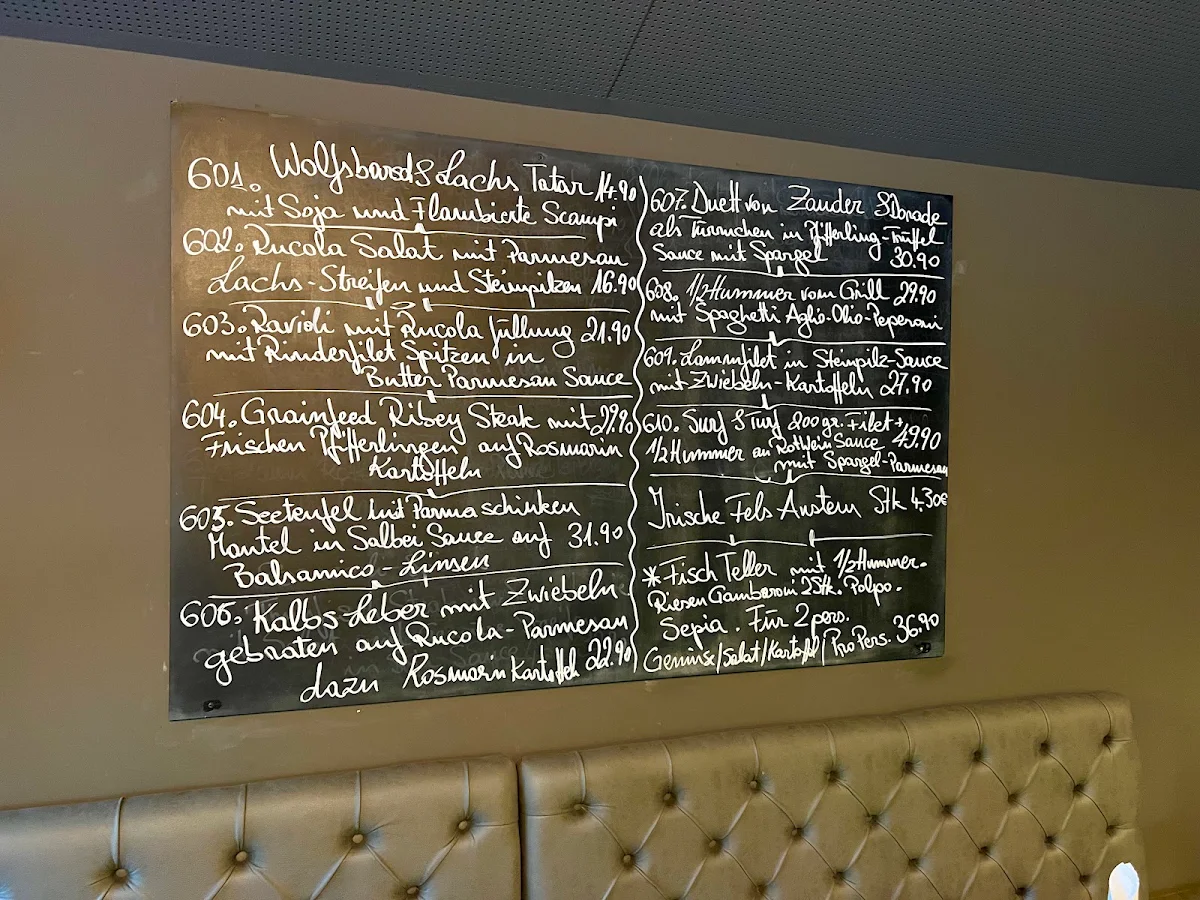 601. Wolfsbarsch & Lachs Tatar 14.90
mit Soja und Flambierte Scampi
602. Rucola Salat mit Parmesan
Lachs-Streifen und Steinpilzen 16.90
603. Ravioli mit Rucola füllung 21.90
mit Rinderfilet Spitzen in
Butter Parmesan Sauce
604. Grainfeed Ribey Steak mit 29.90
Frischen Pfifferlingen auf Rosmarin
Kartoffeln
605. Seeteufel mit Parma schinken
Mantel in Salbei Sauce auf 31.90
Balsamico-Linsen
606. Kalbs Leber mit Zwiebeln
gebraten auf Rucola-Parmesan
dazu Rosmarin Kartoffeln 22.90
607. Duett von Zander & Dorade
als Türmchen in Pfifferling-Trüffel
Sauce mit Spargel 30.90
608. 1/2 Hummer vom Grill 29.90
mit Spaghetti Aglio-Olio-Peperoni
609. Lammfilet in Steinpilz-Sauce
mit Zwiebeln-Kartoffeln 27.90
610. Surf & Turf 200 gr. Filet +
1/2 Hummer an Rotwein Sauce 49.90
mit Spargel-Parmesan
Irische Fels Austern Stk 4,30€
*Fisch Teller mit 1/2 Hummer.
Riesen Gamberoni 2 Stk. Polpo.
Sepia. Für 2 pers.
Gemüse/Salat/Kartoffl/ Pro Pers. 36.90